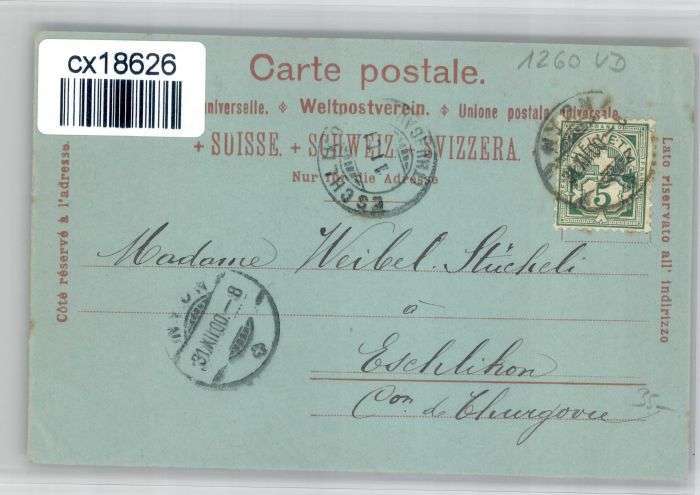 cx18626
1260 VD
Carte postale.
universelle. Weltpostverein. Unione postale universale.
+ SUISSE. + SCHWEIZ. SVIZZERA.
Nur für die Adresse
Côté réservé à l'adresse.
Lato riservato all' indirizzo
NYON
HELVETIA
5
ESCHLI
Madame Weibel-Stücheli
à
Eschlikon
Con de Thurgovie
NYON
31.XII.00.-8
35.-